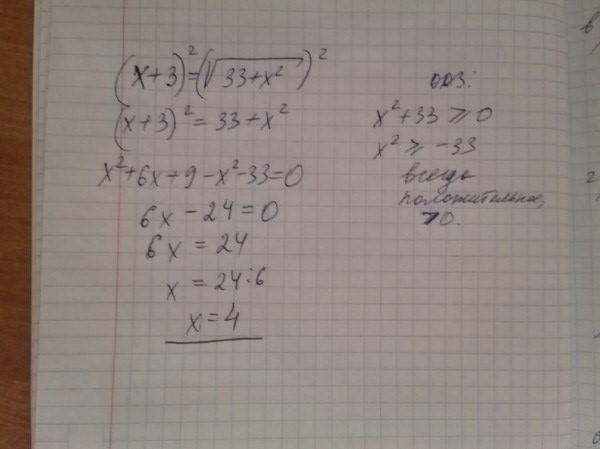 (x+3)²=(√33+x²)²
(x+3)²=33+x²
x²+6x+9-x²-33=0
6x-24=0
6x=24
x=24:6
x=4
ОДЗ:
x²+33≥0
x²≥-33
всегда
положительное,
>0.